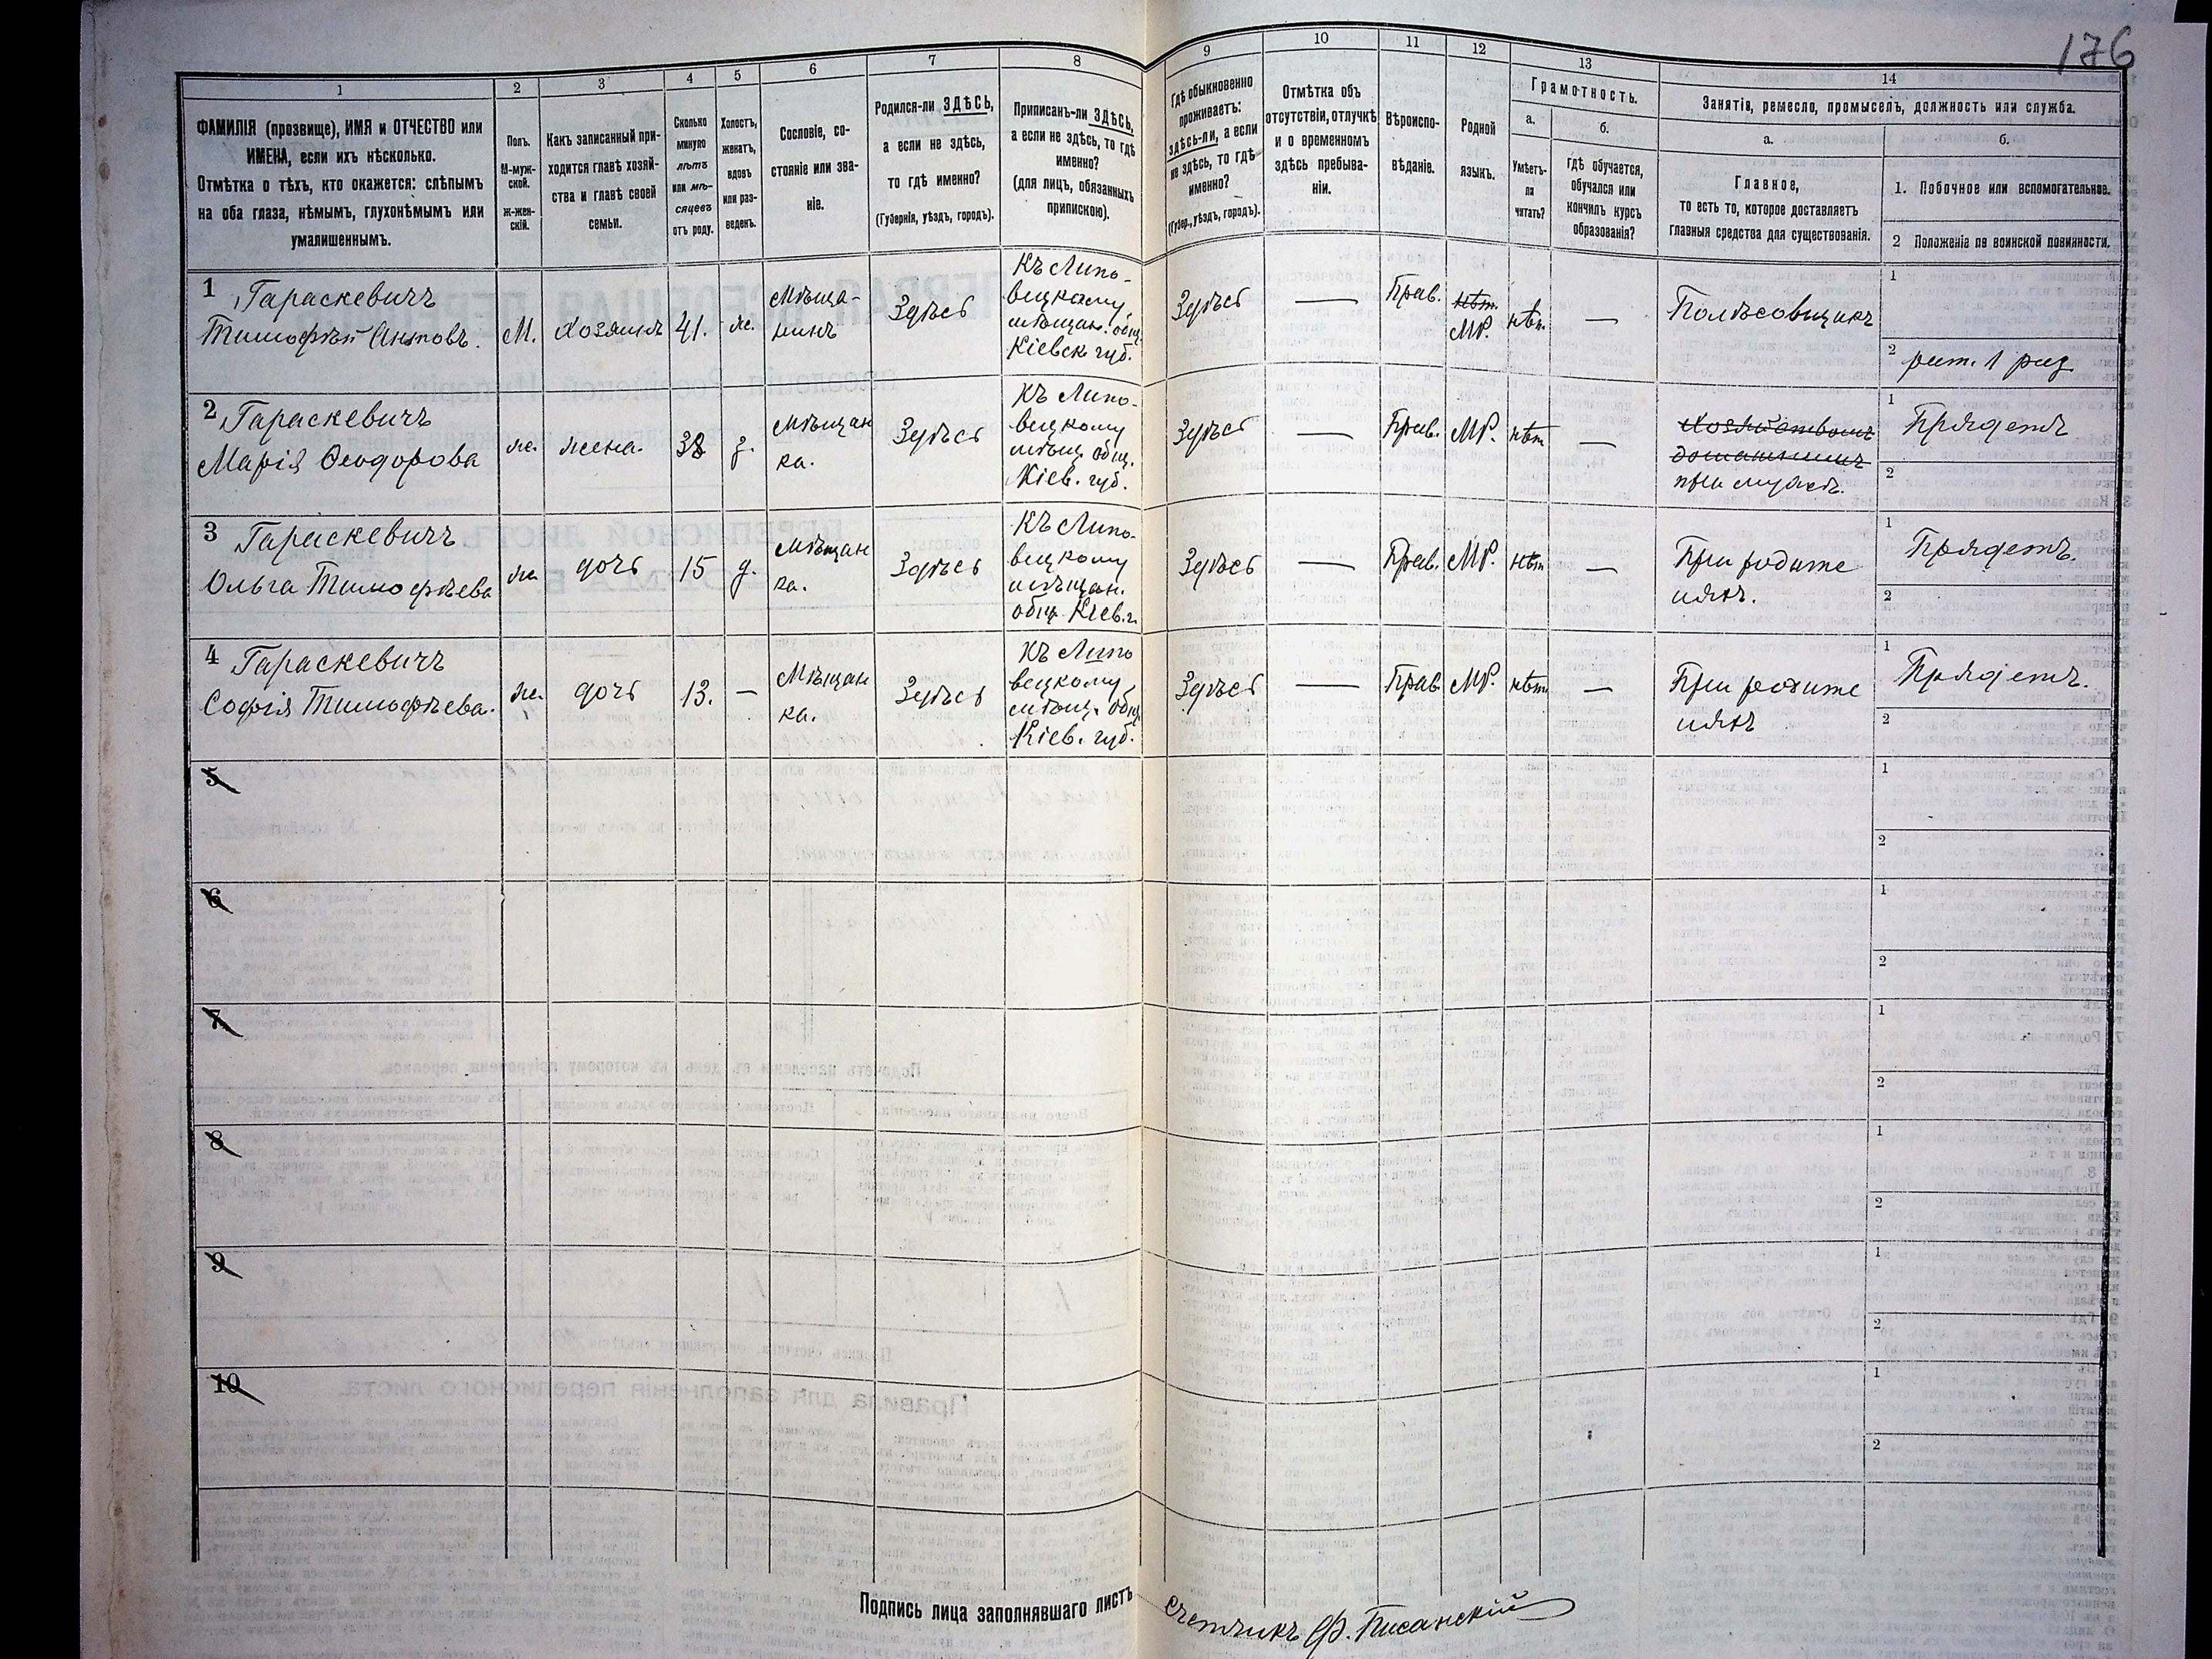 176
1
2
3
4
5
6
7
8
9
10
11
12
13
14
ФАМИЛІЯ (прозвище), ИМЯ и ОТЧЕСТВО или
ИМЕНА, если ихъ нѣсколько.
Отмѣтка о тѣхъ, кто окажется: слѣпымъ
на оба глаза, нѣмымъ, глухонѣмымъ или
умалишеннымъ.
Полъ.
М-муж-
ской.
ж-жен-
скій.
Какъ записанный при-
ходится главѣ хозяй-
ства и главѣ своей
семьи.
Сколько
минуло
лѣтъ
или мѣ-
сяцевъ
отъ роду.
Холостъ,
женатъ,
вдовъ
или раз-
веденъ.
Сословіе, со-
стояніе или зва-
ніе.
Родился-ли ЗДѢСЬ,
а если не здѣсь,
то гдѣ именно?
(Губернія, уѣздъ, городъ).
Приписанъ-ли ЗДѢСЬ,
а если не здѣсь, то гдѣ
именно?
(для лицъ, обязанныхъ
припискою).
Гдѣ обыкновенно
проживаетъ:
здѣсь-ли, а если
не здѣсь, то гдѣ
именно?
(Губер., уѣздъ, городъ).
Отмѣтка объ
отсутствіи, отлучкѣ
и о временномъ
здѣсь пребыва-
ніи.
Вѣроиспо-
вѣданіе.
Родной
языкъ.
Грамотность.
а.
Умѣетъ-
ли
читать?
б.
гдѣ обучается,
обучался или
кончилъ курсъ
образованія?
Занятія, ремесло, промыселъ, должность или служба.
а.
Главное,
то есть то, которое доставляетъ
главныя средства для существованія.
б.
1. Побочное или вспомогательное.
2 Положеніе по воинской повинности.
1
Тараскевичъ
Тимофѣй Антовъ.
М.
Хозяинъ
41.
ж.
Мѣща-
нинъ
Здѣсь
Къ Липо-
вецкому
мѣщан. общ.
Кіевск. губ.
Здѣсь
—
Прав.
нѣт.
МР.
нѣт.
—
Полѣсовщикъ
1
2 рат. 1 раз.
2
Тараскевичъ
Марія Ѳеодорова
ж.
жена.
38
з.
Мѣщан
ка.
Здѣсь
Къ Липо-
вецкому
мѣщ. общ.
Кіев. губ.
Здѣсь
—
Прав.
МР.
нѣт
—
Хозяйствомъ
домашнимъ
при мужѣ.
1 Прядетъ
2
3
Тараскевичъ
Ольга Тимофѣева
ж.
дочь
15
д.
Мѣщан
ка.
Здѣсь
Къ Липо-
вецкому
мѣщан.
общ. Кіев. г.
Здѣсь
—
Прав.
МР.
нѣт
—
При родите
ляхъ.
1 Прядетъ.
2
4
Тараскевичъ
Софія Тимофѣева.
ж.
дочь
13.
—
Мѣщан
ка.
Здѣсь
Къ Липо
вецкому
мѣщ. общ.
Кіев. губ.
Здѣсь
—
Прав
МР.
нѣт.
—
При родите
ляхъ
1 Прядетъ.
2
5
1
2
6
1
2
7
1
2
8
1
2
9
1
2
10
1
2
Подпись лица заполнявшаго листъ
Счетчикъ Ф. Писанскій